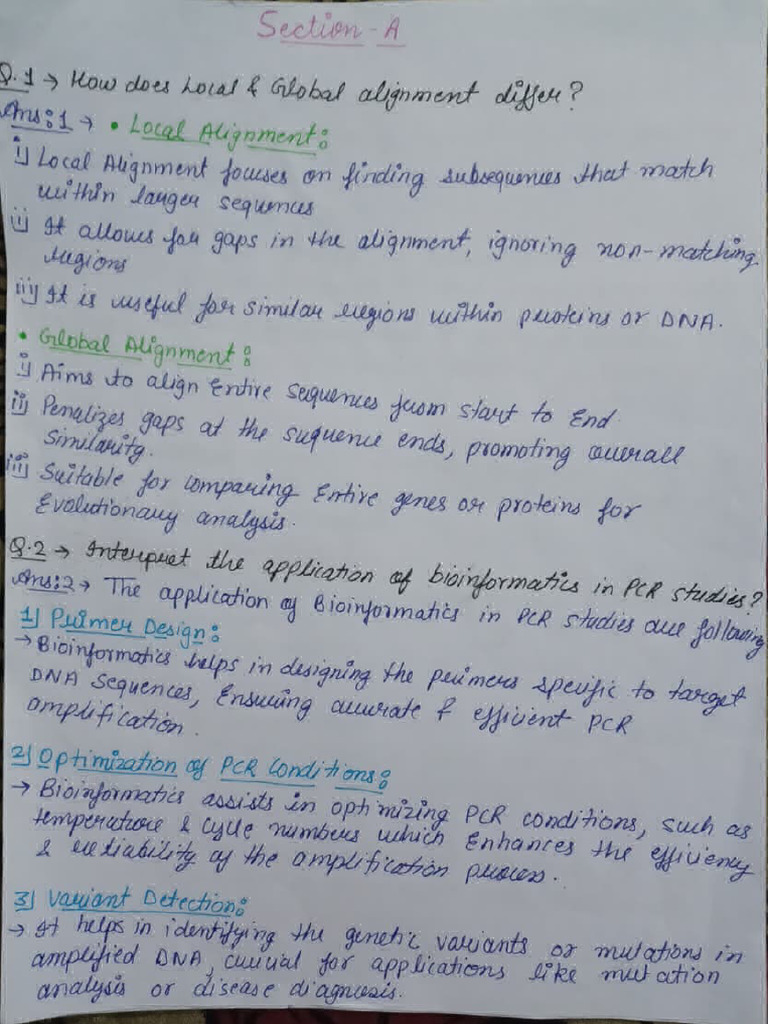 Section - A
Q.1 → How does Local & Global alignment differ?
Ans:1 → • Local Alignment:
i) Local Alignment focuses on finding subsequences that match
within larger sequences
ii) It allows for gaps in the alignment, ignoring non-matching
regions
iii) It is useful for similar regions within proteins or DNA.
• Global Alignment:
i) Aims to align Entire sequences from start to End.
ii) Penalizes gaps at the sequence ends, promoting overall
similarity.
iii) Suitable for comparing Entire genes or proteins for
Evolutionary analysis.
Q.2 → Interpret the application of bioinformatics in PCR studies?
Ans:2 → The application of Bioinformatics in PCR studies are following
1) Primer Design:
→ Bioinformatics helps in designing the primers specific to target
DNA sequences, Ensuring accurate & efficient PCR
amplification.
2) Optimization of PCR Conditions:
→ Bioinformatics assists in optimizing PCR conditions, such as
temperature & cycle numbers which Enhances the efficiency
& reliability of the amplification process.
3) Variant Detection:
→ It helps in identifying the genetic variants or mutations in
amplified DNA, crucial for applications like mutation
analysis or disease diagnosis.